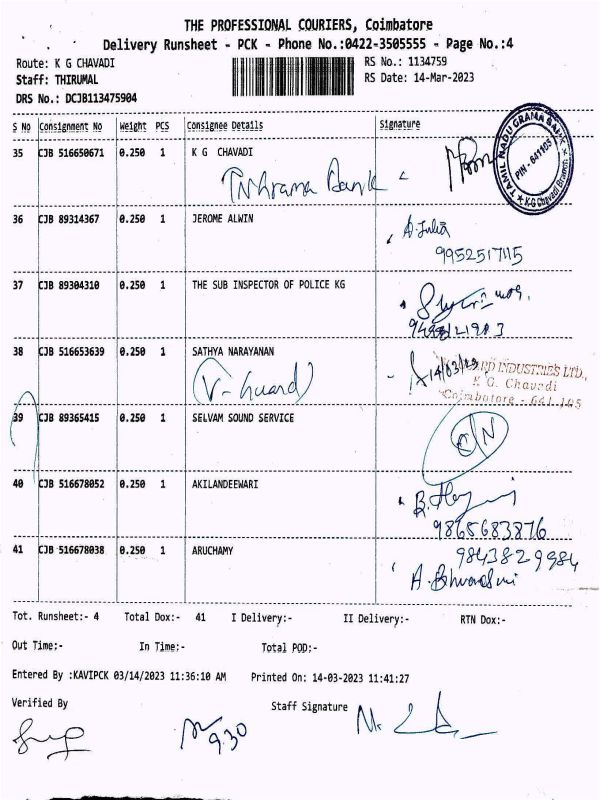 THE PROFESSIONAL COURIERS, Coimbatore
Delivery Runsheet - PCK - Phone No.:0422-3505555 - Page No.:4
Route: K G CHAVADI
RS No.: 1134759
Staff: THIRUMAL
RS Date: 14-Mar-2023
DRS No.: DCJB113475904
S No Consignment No Weight PCS Consignee Details Signature
35 CJB 516650671 0.250 1 K G CHAVADI
TAMIL NADU GRAMA BANK
PIN - 641105
K.G Chavadi Branch
36 CJB 89314367 0.250 1 JEROME ALWIN
A. Julia
9952517115
37 CJB 89304310 0.250 1 THE SUB INSPECTOR OF POLICE KG
38 CJB 516653639 0.250 1 SATHYA NARAYANAN
V-Guard
14/03/23
INDUSTRIES LTD.,
K G. Chavadi
Coimbatore - 641 105
39 CJB 89365415 0.250 1 SELVAM SOUND SERVICE
CN
40 CJB 516678052 0.250 1 AKILANDEEWARI
9865683876
41 CJB 516678038 0.250 1 ARUCHAMY
9843829984
Tot. Runsheet:- 4 Total Dox:- 41 I Delivery:- II Delivery:- RTN Dox:-
Out Time:- In Time:- Total POD:-
Entered By :KAVIPCK 03/14/2023 11:36:10 AM Printed On: 14-03-2023 11:41:27
Verified By
Staff Signature
9.30